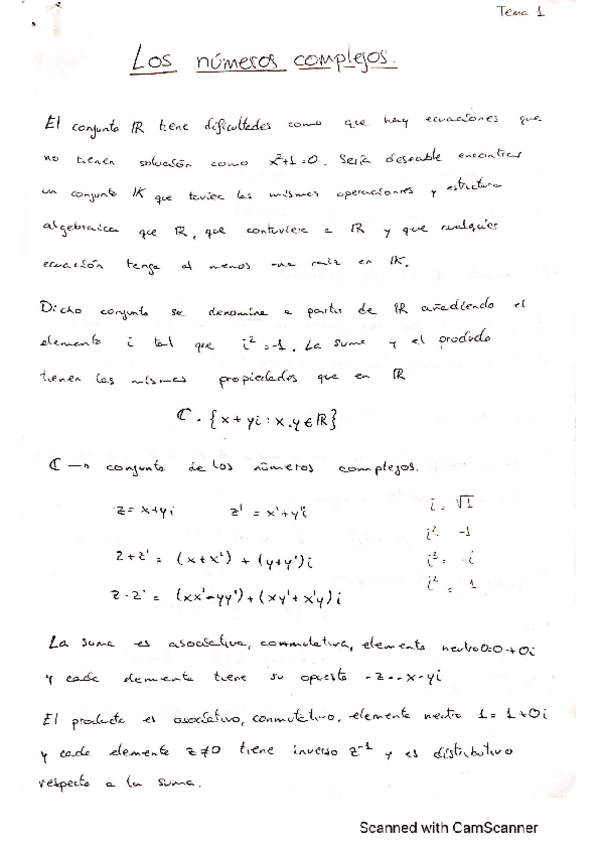 Tema 1
Los números complejos.
El conjunto ℝ tiene dificultades como que hay ecuaciones que
no tienen solución como x²+1=0. Sería deseable encontrar
un conjunto 𝕂 que tuviera las mismas operaciones y estructura
algebraica que ℝ, que contuviera a ℝ y que cualquier
ecuación tenga al menos una raíz en 𝕂.
Dicho conjunto se denomina a partir de ℝ añadiendo el
elemento i tal que i²=-1. La suma y el producto
tienen las mismas propiedades que en ℝ
ℂ = {x+yi : x,y∈ℝ}
ℂ → conjunto de los números complejos.
z = x+yi z' = x'+y'i i = √1
i² = -1
z+z' = (x+x') + (y+y')i i³ = -i
z·z' = (xx'-yy')+(xy'+x'y)i i⁴ = 1
La suma es asociativa, conmutativa, elemento neutro 0=0+0i
y cada elemento tiene su opuesto -z=-x-yi
El producto es asociativo, conmutativo, elemento neutro 1=1+0i
y cada elemento z≠0 tiene inverso z⁻¹ y es distributivo
respecto a la suma.
Scanned with CamScanner